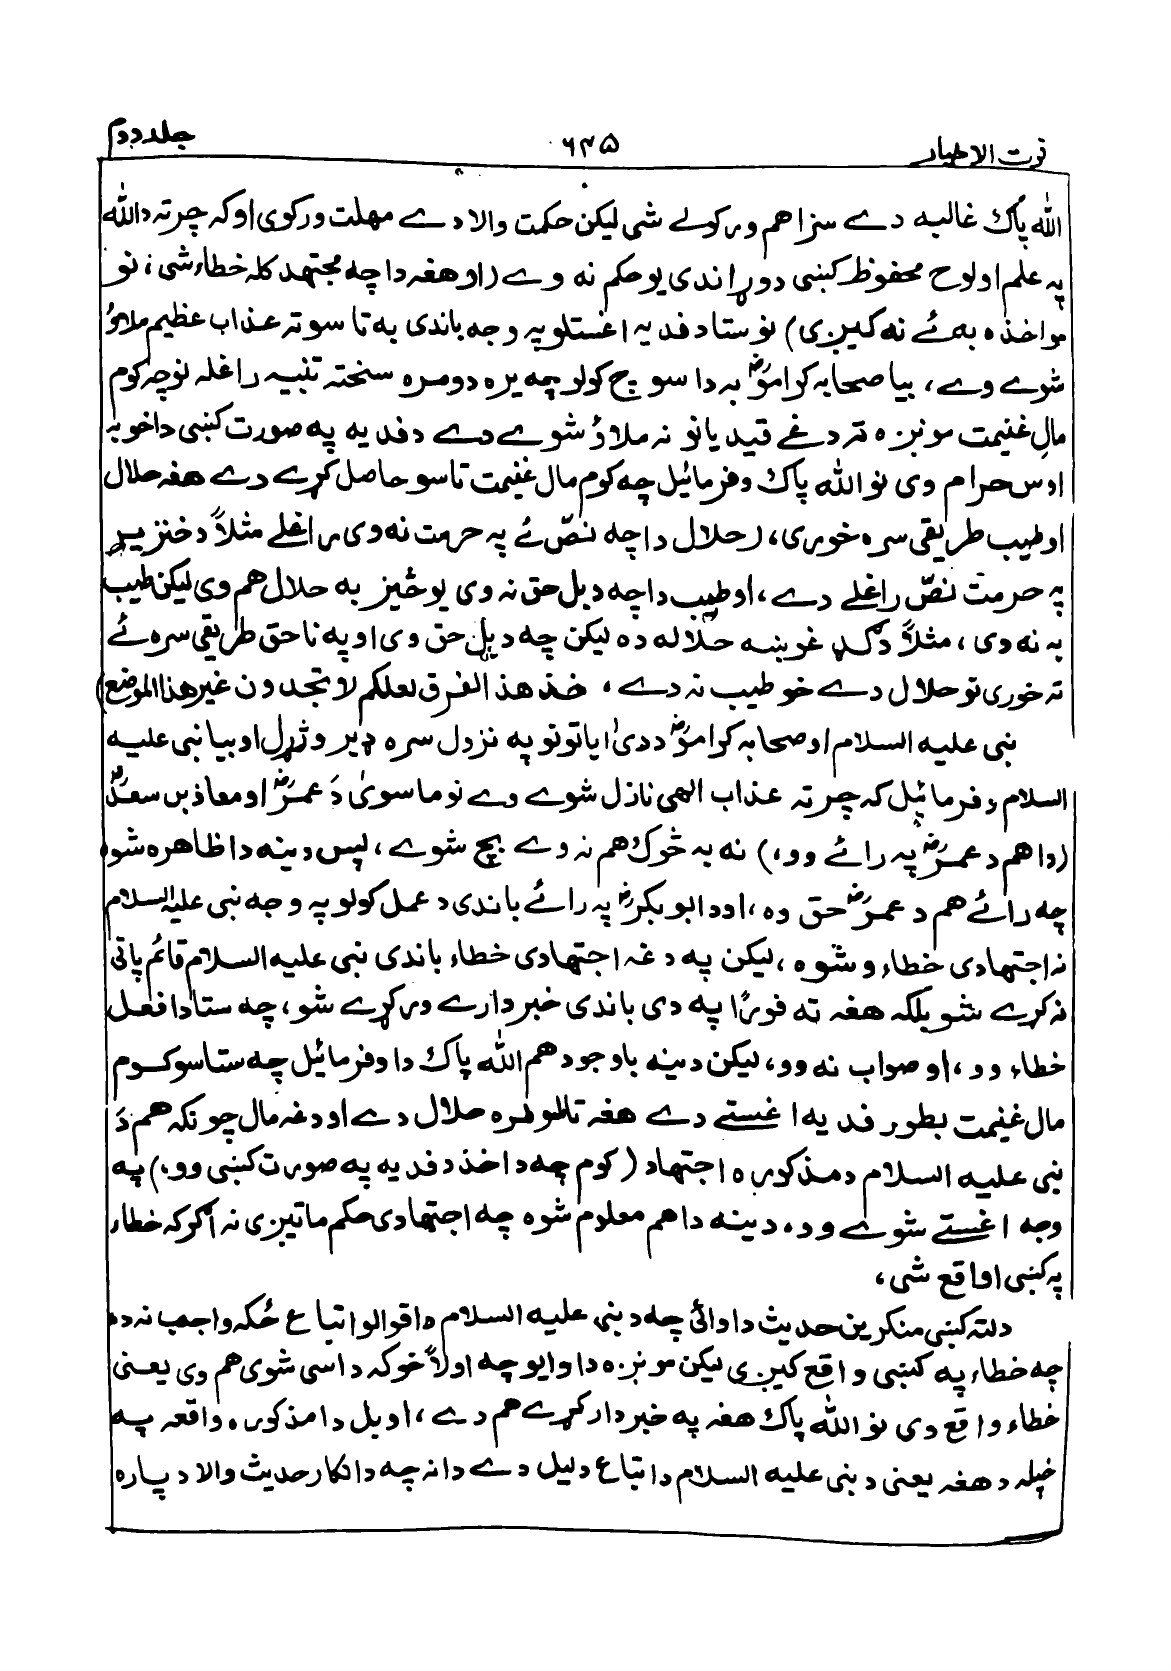 قوت الاخیار ۶۳۵ جلد دوم
الله پاک غالبه دے سزا هم ورکولے شی لیکن حکمت والا دے مهلت ورکوی او که چرته دالله
په علم او لوح محفوظ کښی دوړاندی یو حکم نه وے (او هغه دا چه مجتهد کله خطاء شی، نو
مواخذه به ئے نه کیږی) نو ستا د فدیه اغستلو په وجه باندی به تاسو ته عذاب عظیم ملاؤ
شوے وے، بیا صحابه کرامؓ به دا سوچ کولو چه یره دومره سخته تنبیه راغله نو چه کوم
مال غنیمت مونږه ته د دغے قیدیانو نه ملاؤ شوے دے د فدیه په صورت کښی دا خو به
اوس حرام وی نو الله پاک وفرمائیل چه کوم مال غنیمت تاسو حاصل کړے دے هغه حلال
او طیب طریقی سره خوری، (حلال دا چه نصّ ئے په حرمت نه وی راغلے مثلاً د خنزیر
په حرمت نصّ راغلے دے، او طیب دا چه د بل حق نه وی یو څیز به حلال هم وی لیکن طیب
به نه وی، مثلاً د ګډ غوښه حلاله ده لیکن چه د بل حق وی او په ناحق طریقی سره ئے
ته خوری نو حلال دے خو طیب نه دے، خذ هذ الفرق لعلکم لا تجدون غیر هذا الموضع)
نبی علیه السلام او صحابه کرامؓ د دی ایاتونو په نزدول سره ډیر وژړل او بیا نبی علیه
السلام وفرمائیل که چرته عذاب الهی نازل شوے وے نو ماسوئ دَ عمرؓ او معاذ بن سعدؓ
(دا هم د عمرؓ په رائے وو،) نه به څوک هم نه وے بچ شوے، پس دینه دا ظاهره شوه
چه رائے هم د عمرؓ حق وه، او د ابوبکرؓ په رائے باندی د عمل کولو په وجه نبی علیه السلام
نه اجتهادی خطاء وشوه، لیکن په دغه اجتهادی خطاء باندی نبی علیه السلام قائم پاتی
نه کرے شو بلکه هغه ته فورًا په دی باندی خبردارے ورکړے شو، چه ستا دا فعل
خطاء وو، او صواب نه وو، لیکن دینه باوجود هم الله پاک دا وفرمائیل چه ستاسو کوم
مال غنیمت بطور فدیه اغستے دے هغه تاسو ته حلال دے او دغه مال چونکه هم دَ
نبی علیه السلام د مذکوره اجتهاد (کوم چه د اخذ د فدیه په صورت کښی وو،) په
وجه اغستے شوے وو، دینه دا هم معلوم شوه چه اجتهادی حکم ماتیږی نه اګرکه خطاء
په کښی اواقع شی،
دلته کښی منکرین حدیث دا وائی چه د نبی علیه السلام د اقوالو اتباع ځکه واجب نه ده
چه خطاء په کښی واقع کیږی لیکن مونږه دا وایو چه اولاً خو که داسی شوی هم وی یعنی
خطاء واقع وی نو الله پاک هغه په خبردار کړے هم دے، او بل دا مذکوره واقعه په
خپله د هغه یعنی د نبی علیه السلام د اتباع دلیل دے دا نه چه د انکار حدیث والا د پاره